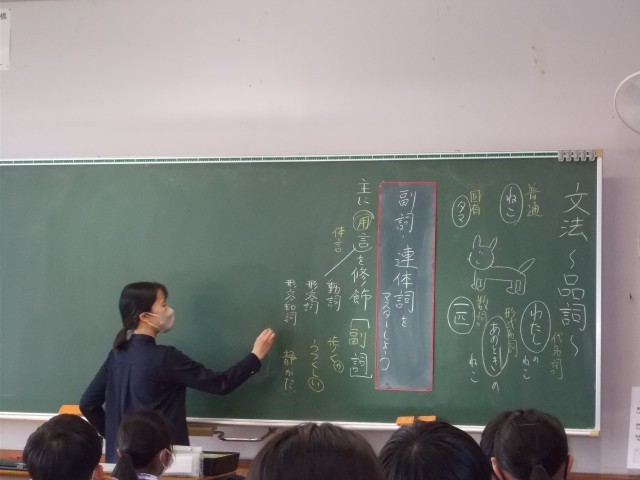 文法〜品詞〜
普通
ねこ
固有
タマ
代名詞
わたしのねこ
形式名詞
あのときのねこ
数詞
一匹
副詞・連体詞を
マスターしよう
主に用言を修飾「副詞」
体言
動詞 歩く
形容詞 うつくしい
形容動詞 静かだ